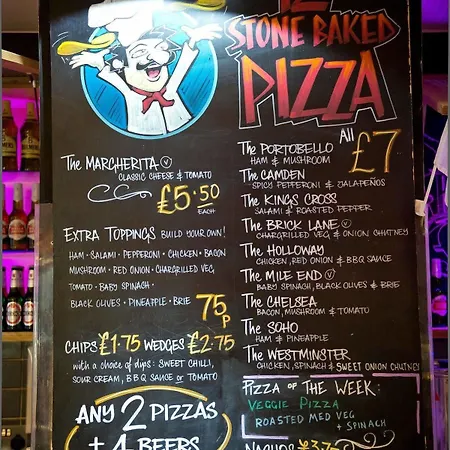 12"
STONE BAKED
PIZZA
The MARGHERITA Ⓥ
CLASSIC CHEESE & TOMATO
£5.50
EACH
EXTRA TOPPINGS BUILD YOUR OWN!
HAM · SALAMI · PEPPERONI · CHICKEN · BACON
MUSHROOM · RED ONION · CHARGRILLED VEG
TOMATO · BABY SPINACH ·
BLACK OLIVES · PINEAPPLE · BRIE
75p
CHIPS £1.75 WEDGES £2.75
with a choice of dips: SWEET CHILLI,
SOUR CREAM, BBQ SAUCE or TOMATO
ANY 2 PIZZAS
+ 4 BEERS
All
£7
The PORTOBELLO
HAM & MUSHROOM
The CAMDEN
SPICY PEPPERONI & JALAPEÑOS
The KINGS CROSS
SALAMI & ROASTED PEPPER
The BRICK LANE Ⓥ
CHARGRILLED VEG & ONION CHUTNEY
The HOLLOWAY
CHICKEN, RED ONION & BBQ SAUCE
The MILE END Ⓥ
BABY SPINACH, BLACK OLIVES & BRIE
The CHELSEA
BACON, MUSHROOM & TOMATO
The SOHO
HAM & PINEAPPLE
The WESTMINSTER
CHICKEN, SPINACH & SWEET ONION CHUTNEY
PIZZA of THE WEEK:
VEGGIE PIZZA
ROASTED MED VEG
+ SPINACH
NACHOS £3.75